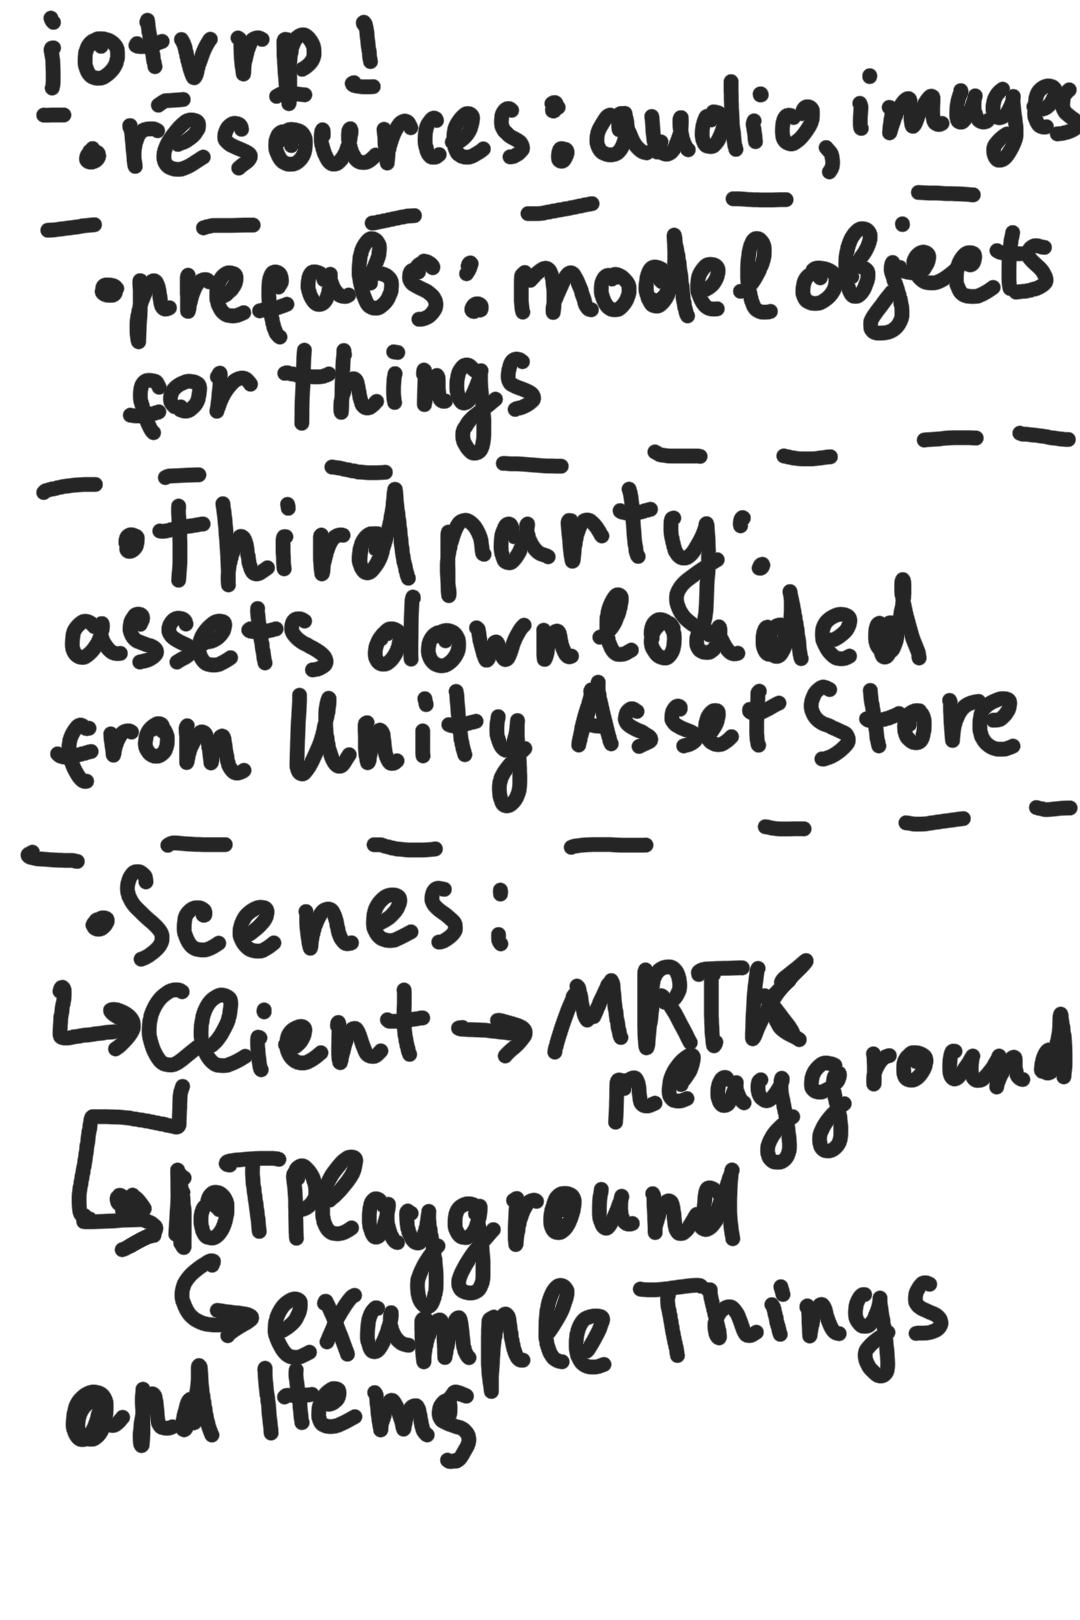 iotvrp!
• resources: audio, images
• prefabs: model objects
for things
• third party:
assets downloaded
from Unity Asset Store
• Scenes:
↳ Client → MRTK
playground
↳ IoTPlayground
↳ example Things
and Items